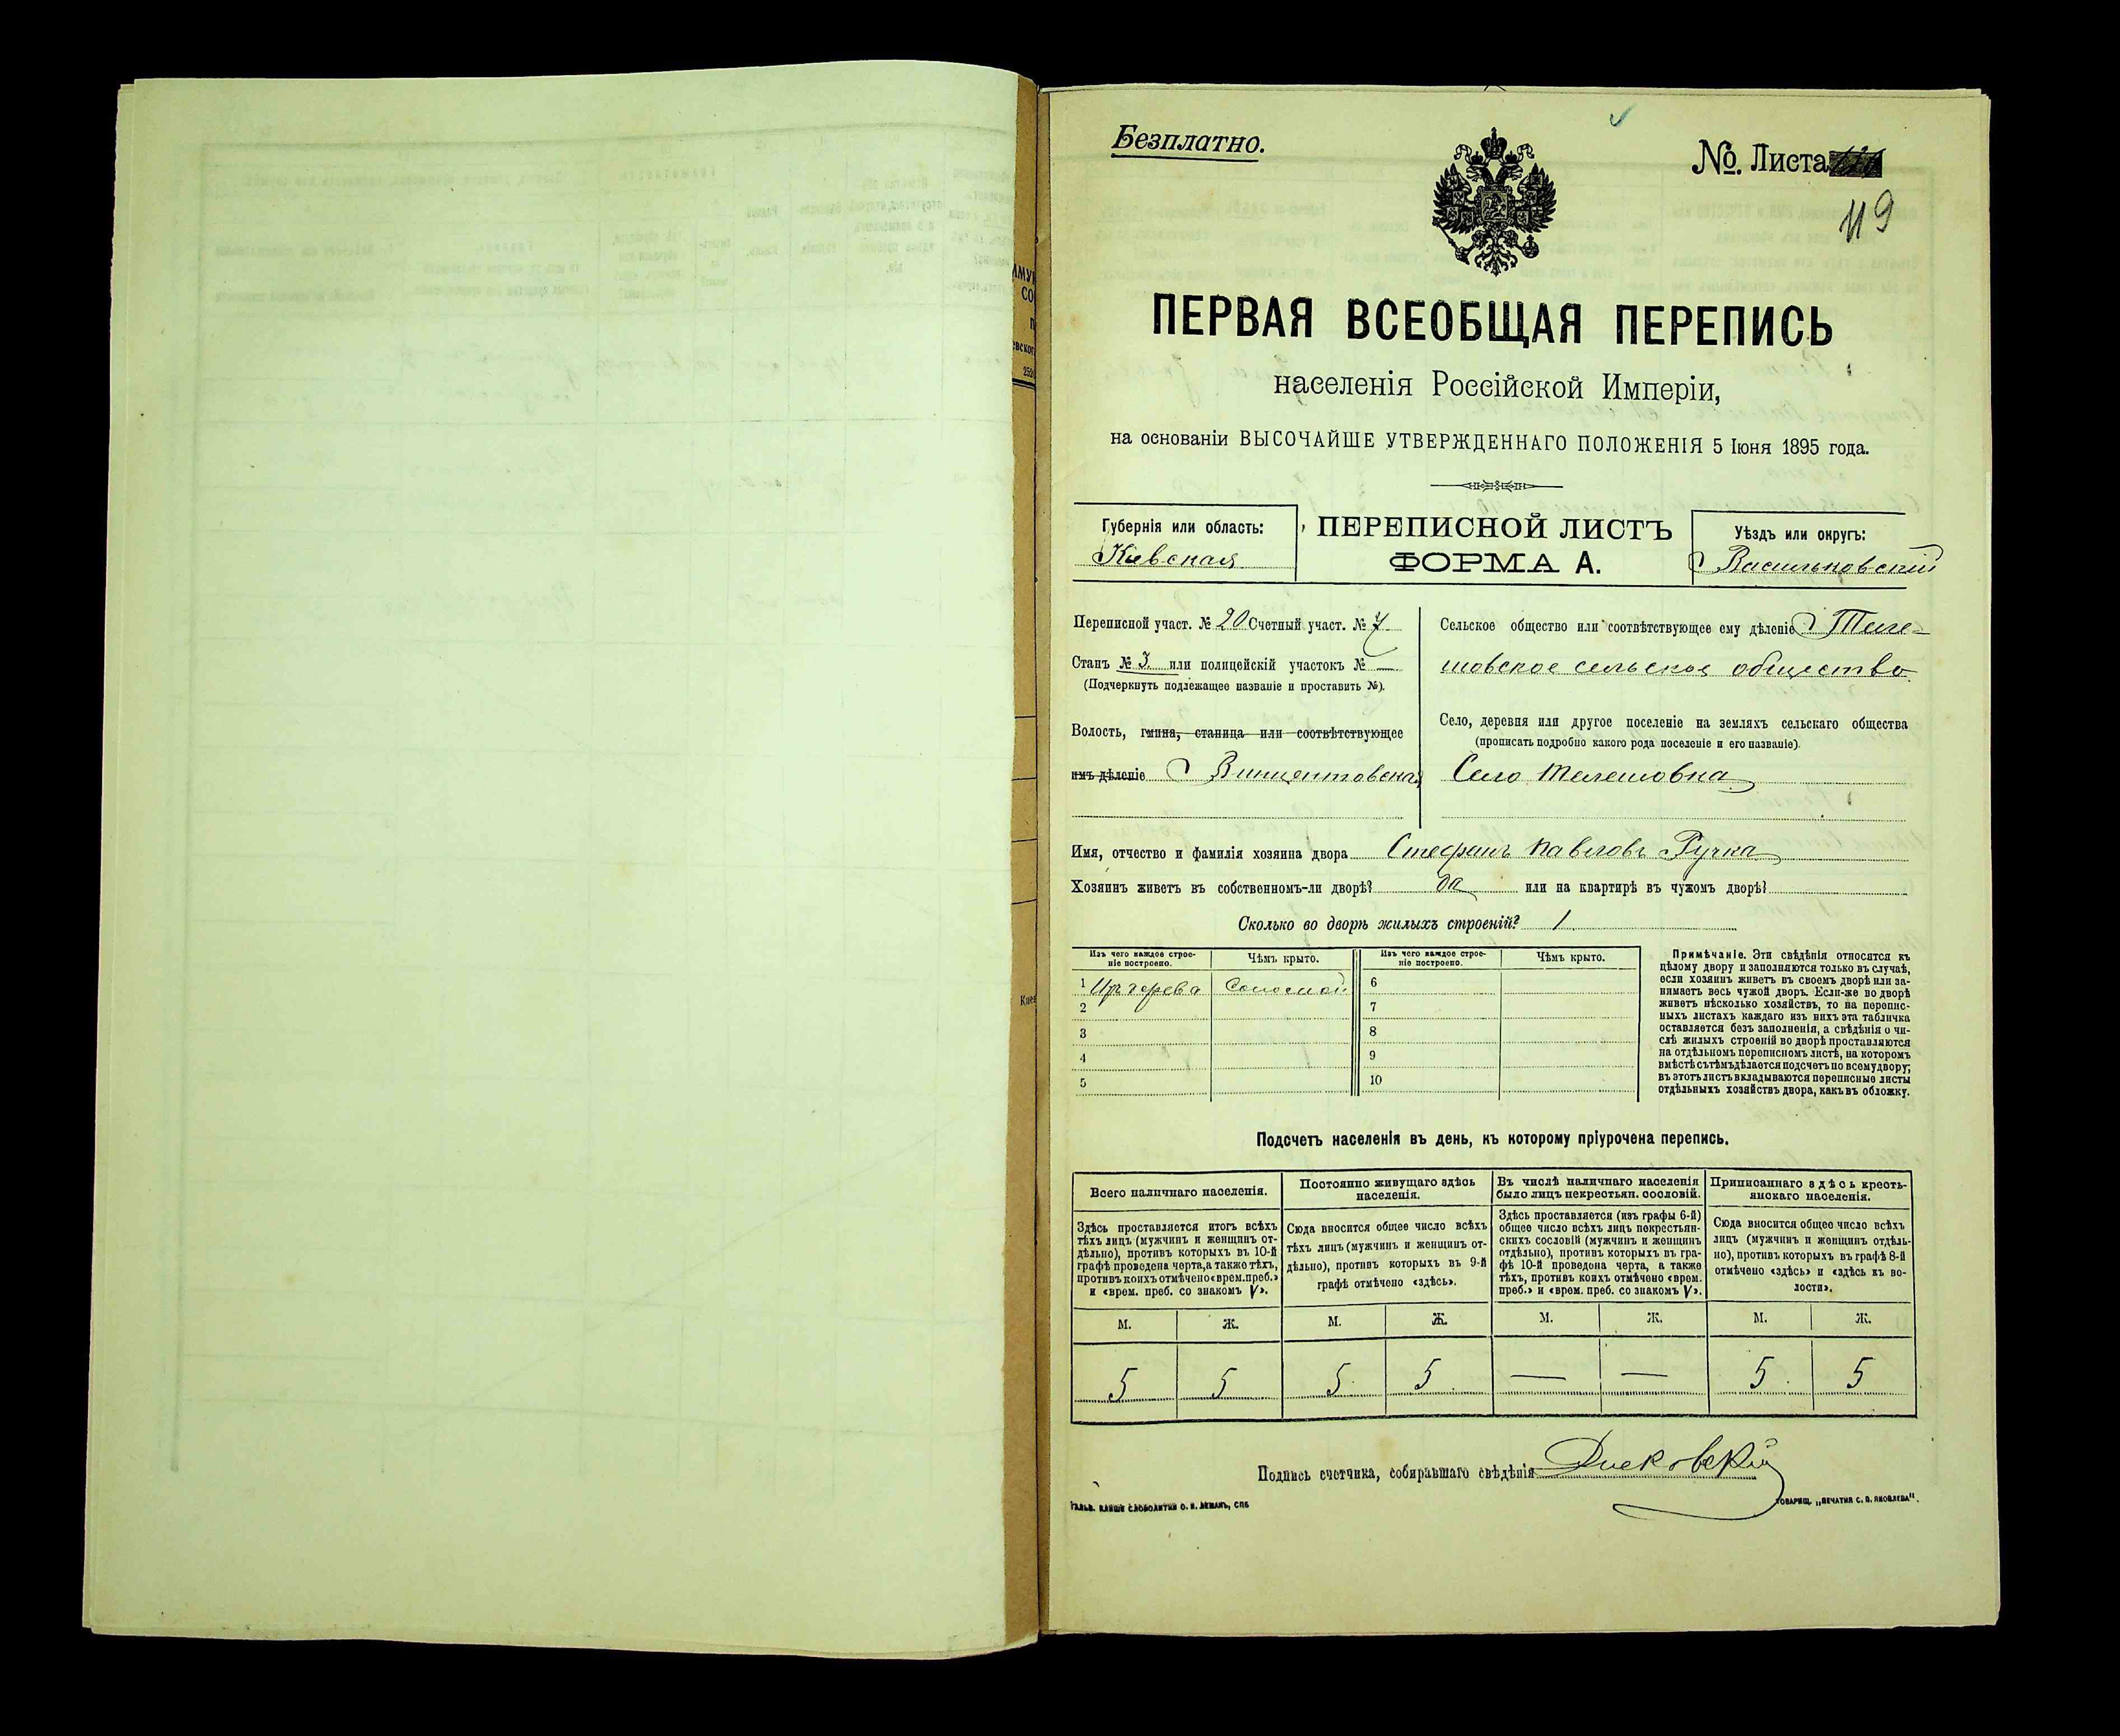 Безплатно.
№. Листа
119
ПЕРВАЯ ВСЕОБЩАЯ ПЕРЕПИСЬ
населенія Россійской Имперіи,
на основаніи ВЫСОЧАЙШЕ УТВЕРЖДЕННАГО ПОЛОЖЕНІЯ 5 Іюня 1895 года.
Губернія или область:
Кіевская
ПЕРЕПИСНОЙ ЛИСТЪ
ФОРМА А.
Уѣздъ или округъ:
Васильковскій
Переписной участ. № 20 Счетный участ. № 7
Станъ № 3. или полицейскій участокъ № —
(Подчеркнуть подлежащее названіе и проставить №).
Волость, гмина, станица или соотвѣтствующее
имъ дѣленіе Винцентовская
Сельское общество или соотвѣтствующее ему дѣленіе Теле-
шовское сельское общество
Село, деревня или другое поселеніе на земляхъ сельскаго общества
(прописать подробно какого рода поселеніе и его названіе).
Село Телешовка
Имя, отчество и фамилія хозяина двора Стефанъ Павловъ Ручка
Хозяинъ живетъ въ собственномъ-ли дворѣ? да или на квартирѣ въ чужомъ дворѣ?
Сколько во дворѣ жилыхъ строеній? 1
Изъ чего каждое строе-
ніе построено.
Чѣмъ крыто.
Изъ чего каждое строе-
ніе построено.
Чѣмъ крыто.
1 Изъ дерева Соломой 6
2 7
3 8
4 9
5 10
Примѣчаніе. Эти свѣдѣнія относятся къ
цѣлому двору и заполняются только въ случаѣ,
если хозяинъ живетъ въ своемъ дворѣ или за-
нимаетъ весь чужой дворъ. Если-же во дворѣ
живетъ нѣсколько хозяйствъ, то на перепис-
ныхъ листахъ каждаго изъ нихъ эта табличка
оставляется безъ заполненія, а свѣдѣнія о чи-
слѣ жилыхъ строеній во дворѣ проставляются
на отдѣльномъ переписномъ листѣ, на которомъ
вмѣстѣ съ тѣмъ дѣлается подсчетъ по всему двору;
въ этотъ листъ вкладываются переписные листы
отдѣльныхъ хозяйствъ двора, какъ въ обложку.
Подсчетъ населенія въ день, къ которому пріурочена перепись.
Всего наличнаго населенія.
Здѣсь проставляется итогъ всѣхъ
тѣхъ лицъ (мужчинъ и женщинъ от-
дѣльно), противъ которыхъ въ 10-й
графѣ проведена черта, а также тѣхъ,
противъ коихъ отмѣчено «врем. преб.»
и «врем. преб. со знакомъ V».
Постоянно живущаго здѣсь
населенія.
Сюда вносится общее число всѣхъ
тѣхъ лицъ (мужчинъ и женщинъ от-
дѣльно), противъ которыхъ въ 9-й
графѣ отмѣчено «здѣсь».
Въ числѣ наличнаго населенія
было лицъ некрестьян. сословій.
Здѣсь проставляется (изъ графы 6-й)
общее число всѣхъ лицъ некрестьян-
скихъ сословій (мужчинъ и женщинъ
отдѣльно), противъ которыхъ въ гра-
фѣ 10-й проведена черта, а также
тѣхъ, противъ коихъ отмѣчено «врем.
преб.» и «врем. преб. со знакомъ V».
Приписаннаго здѣсь кресть-
янскаго населенія.
Сюда вносится общее число всѣхъ
лицъ (мужчинъ и женщинъ отдѣль-
но), противъ которыхъ въ графѣ 8-й
отмѣчено «здѣсь» и «здѣсь въ во-
лости».
М. Ж. М. Ж. М. Ж. М. Ж.
5 5 5 5 — — 5 5
Подпись счетчика, собиравшаго свѣдѣнія
ГАЛЬВ. КЛИШЕ СЛОВОЛИТНИ О. И. ЛЕМАНЪ, СПБ
ТОВАРИЩ. „ПЕЧАТНЯ С. П. ЯКОВЛЕВА".